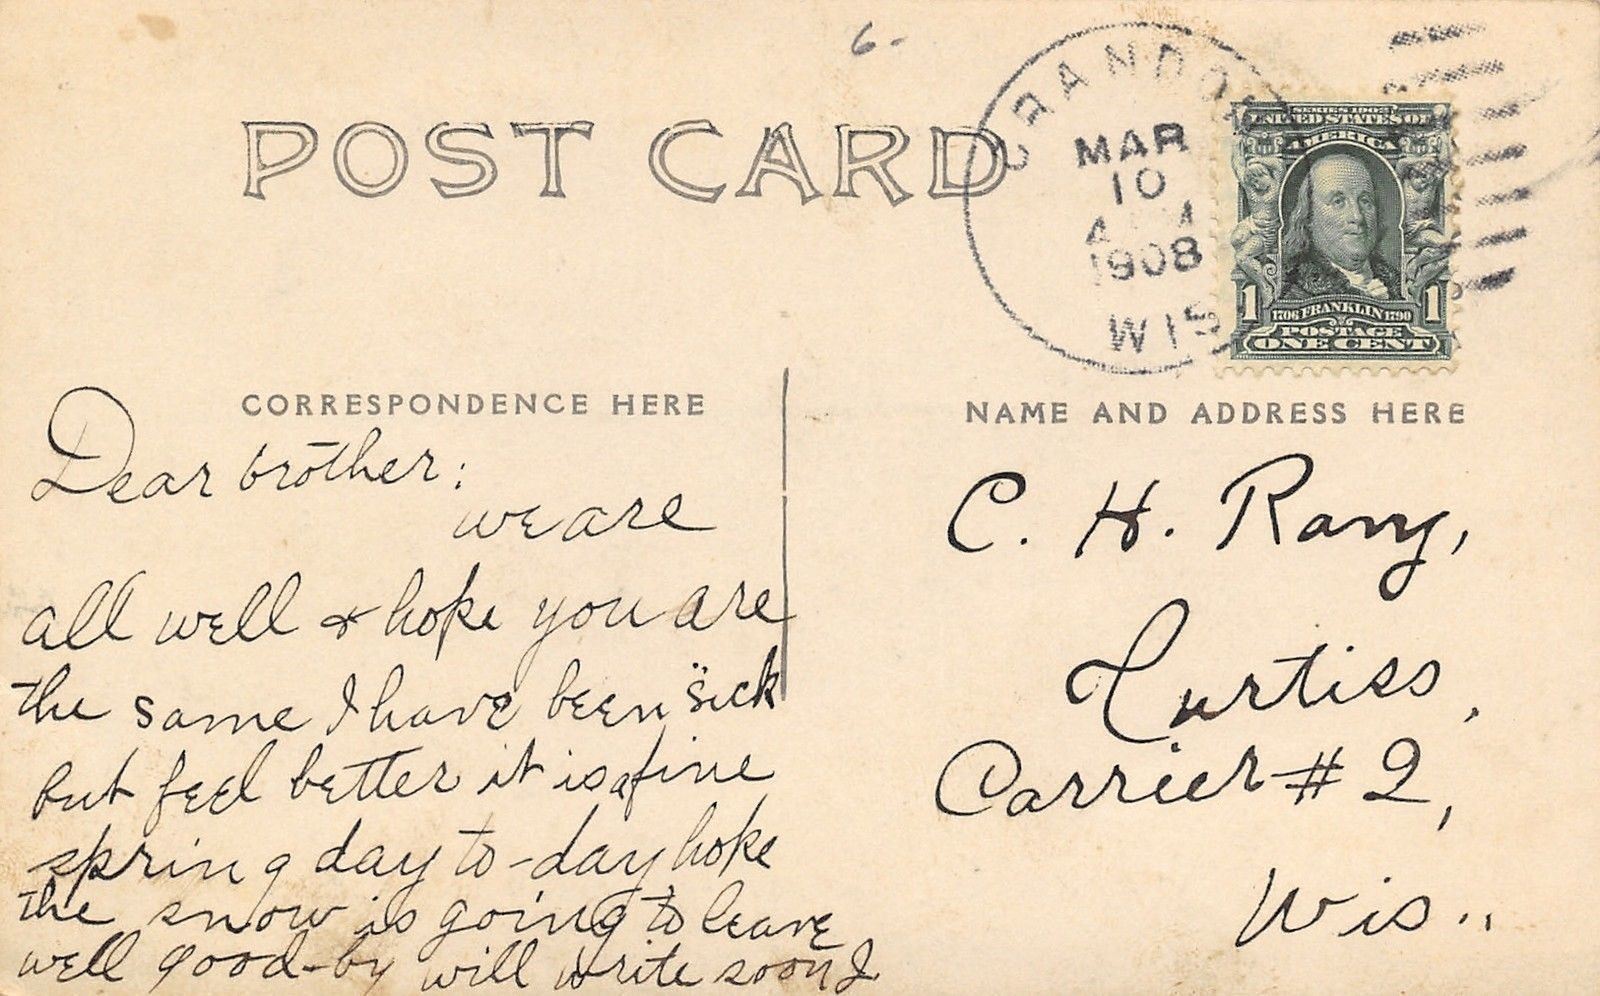 6-
POST CARD
CRANDON
MAR
10
A M
1908
WIS
SERIES 1902
UNITED STATES OF
AMERICA
1 1
1706 FRANKLIN 1790
POSTAGE
ONE CENT
CORRESPONDENCE HERE
Dear brother:
we are
all well & hope you are
the same I have been "sick
but feel better it is a fine
spring day to-day hope
the snow is going to leave
well good-by will write soon J
NAME AND ADDRESS HERE
C. H. Rany,
Curtiss,
Carrier # 2,
Wis..